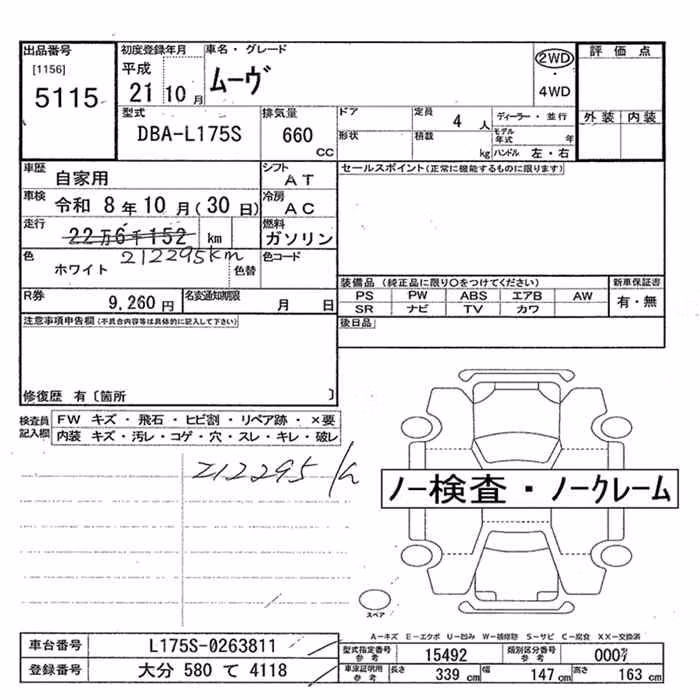 出品番号
[1156]
5115
初度登録年月
平成
21 10 月
車名・グレード
ムーヴ
2WD
・
4WD
評価点
外装 内装
型式
DBA-L175S
排気量
660
CC
ドア
形状
定員 4 人
積載 kg
ディーラー・並行
モデル年式 年
ハンドル 左・右
車歴
自家用
シフト
AT
セールスポイント(正常に機能するものに限ります)
車検
令和 8年10月(30日)
冷房
AC
走行
22万6千152 km
212295km
燃料
ガソリン
色
ホワイト
色替
色コード
装備品 (純正品に限り○をつけてください)
PS PW ABS エアB AW
SR ナビ TV カワ
新車保証書
有・無
R券
9,260 円
名変通知期限
月 日
後日品
注意事項申告欄(不具合内容等は具体的に記入して下さい)
修復歴 有〔箇所 〕
検査員
記入欄
FW キズ・飛石・ヒビ割・リペア跡・×要
内装 キズ・汚レ・コゲ・穴・スレ・キレ・破レ
212295 km
ノー検査・ノークレーム
スペア
A-キズ E-エクボ U-凹み W-補修跡 S-サビ C-腐食 XX-交換済
車台番号 L175S-0263811
登録番号 大分 580 て 4118
型式指定番号
参考
15492
類別区分番号
参考
000
車庫証明用
参考
長さ 339 cm 幅 147 cm 高さ 163 cm